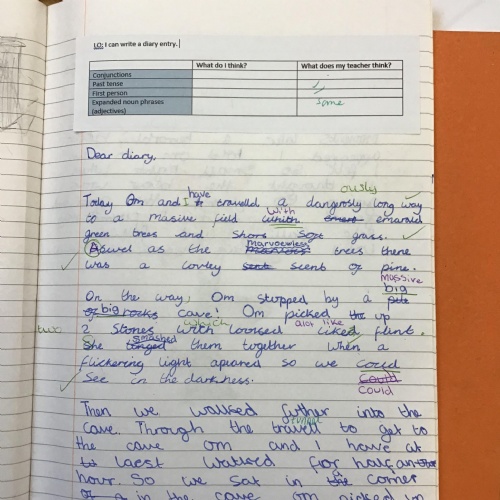 LO: I can write a diary entry.
What do I think? What does my teacher think?
Conjunctions
Past tense ✓
First person ✓
Expanded noun phrases some
(adjectives)
Dear diary,
ously
have
Today Om and I travelld a dangerosly long way
with
to a massive field which emerald
green trees and short soft grass.
marvoewless
Aswel as the trees there
was a lovley scent of pine.
massive
big
On the way, Om stopped by a
of big rocks cave! Om picked up
which alot like
two
2 stones with looked liked flint.
smashed
She them together when a
flickering light apeared so we could
could
see in the darkness. could
Then we walked further into the
tunnel
cave. Through the travell to get to
the cave om and I have at
least walked for half an
hour. So we sat in a corner
in the cave om picked in